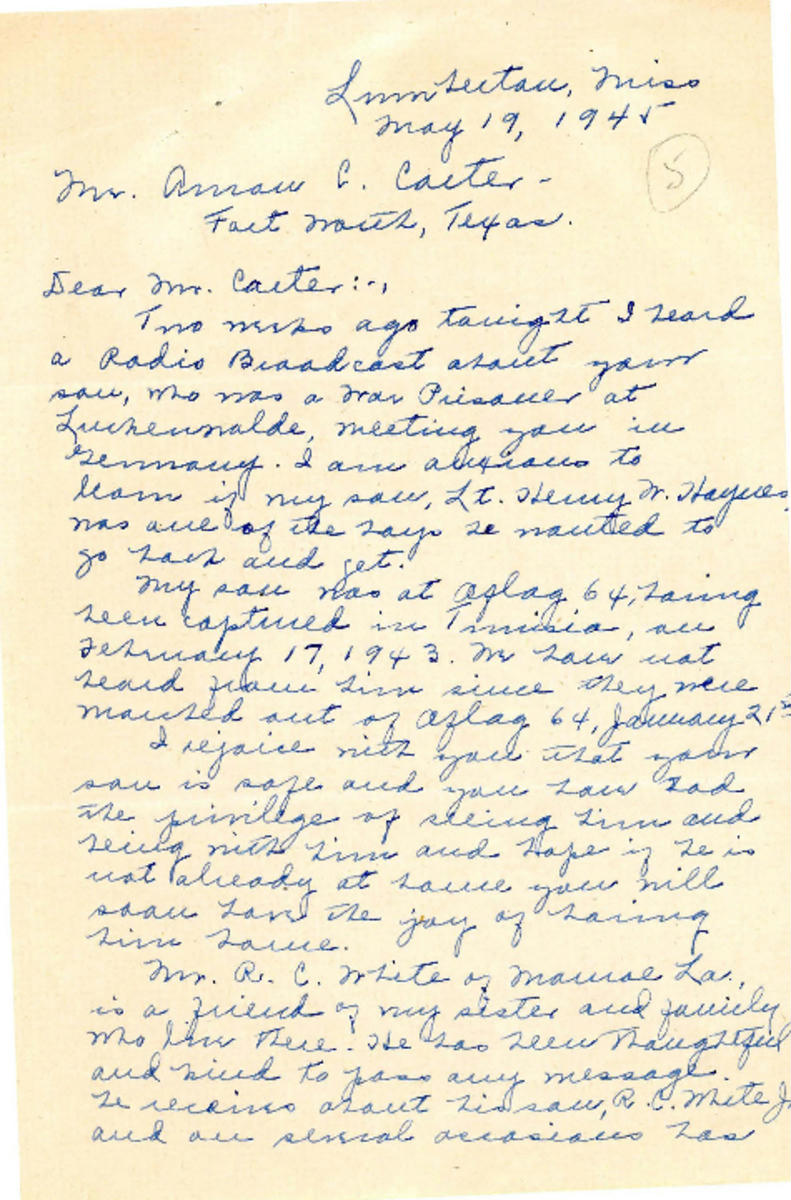 Lumberton, Miss
May 19, 1945
5
Mr. Amon C. Carter -
Fort Worth, Texas.
Dear Mr. Carter:-,
Two weeks ago tonight I heard
a Radio Broadcast about your
son, who was a War Prisoner at
Luckenwalde, meeting you in
Germany. I am anxious to
learn if my son, Lt. Henry W. Haynes,
was one of the boys he wanted to
go back and get.
My son was at Oflag 64, having
been captured in Tunisia, on
February 17, 1943. We have not
heard from him since they were
marched out of Oflag 64, January 21st
I rejoice with you that your
son is safe and you have had
the privilege of seeing him and
being with him and hope if he is
not already at home you will
soon have the joy of having
him home.
Mr. R. C. White of Monroe La.,
is a friend of my sister and family
who live there. He has been thoughtful
and kind to pass any message
he receives about his son, R. C. White Jr
and on several occasions has